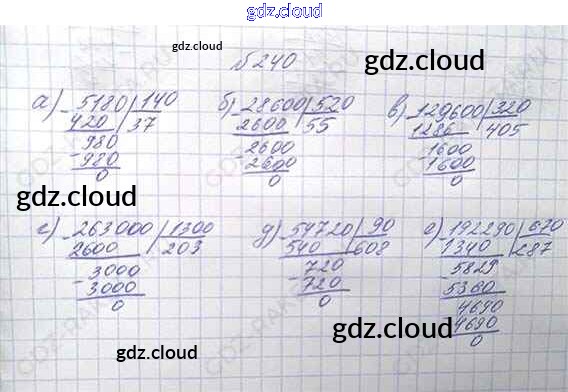 gdz.cloud
gdz.cloud
gdz.cloud
№240
а) -5180|140
420 |37
980
-980
0
б) -28600|520
2600 |55
2600
-2600
0
в) -129600|320
1286 405
-1600
1600
0
gdz.cloud
г) -263000|1300
2600 |203
-3000
3000
0
д) -54720|90
540 |608
-720
720
0
е) -192290|670
1340 |287
-5829
5360
4690
4690
0
gdz.cloud
gdz.cloud